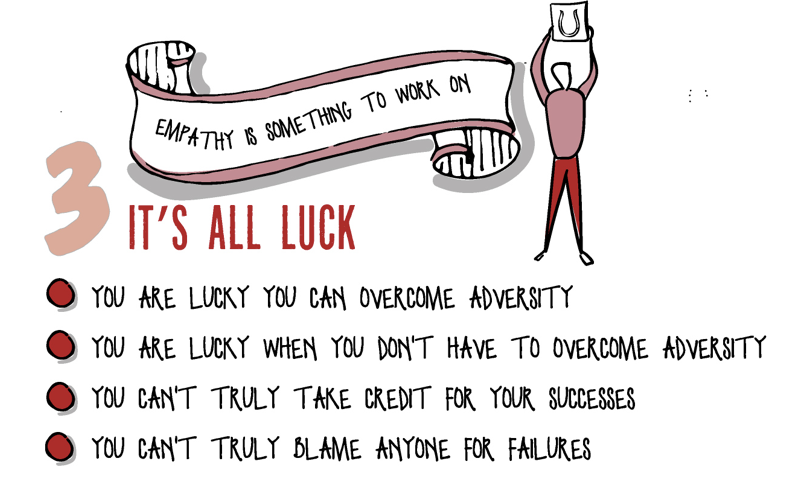 EMPATHY IS SOMETHING TO WORK ON
3
IT'S ALL LUCK
YOU ARE LUCKY YOU CAN OVERCOME ADVERSITY
YOU ARE LUCKY WHEN YOU DON'T HAVE TO OVERCOME ADVERSITY
YOU CAN'T TRULY TAKE CREDIT FOR YOUR SUCCESSES
YOU CAN'T TRULY BLAME ANYONE FOR FAILURES